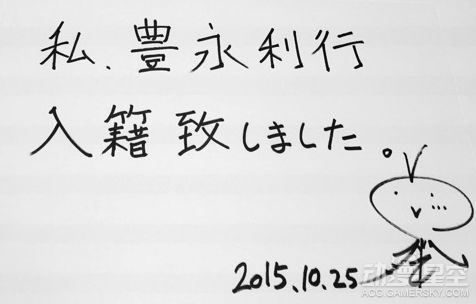 私、豊永利行
入籍致しました。
2015.10.25
动漫星空
ACG.GAMERSKY.COM